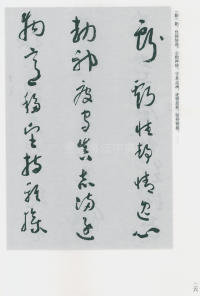 匪虧性靜情逸心
動神疲守真志滿逐
物意移堅持雅操